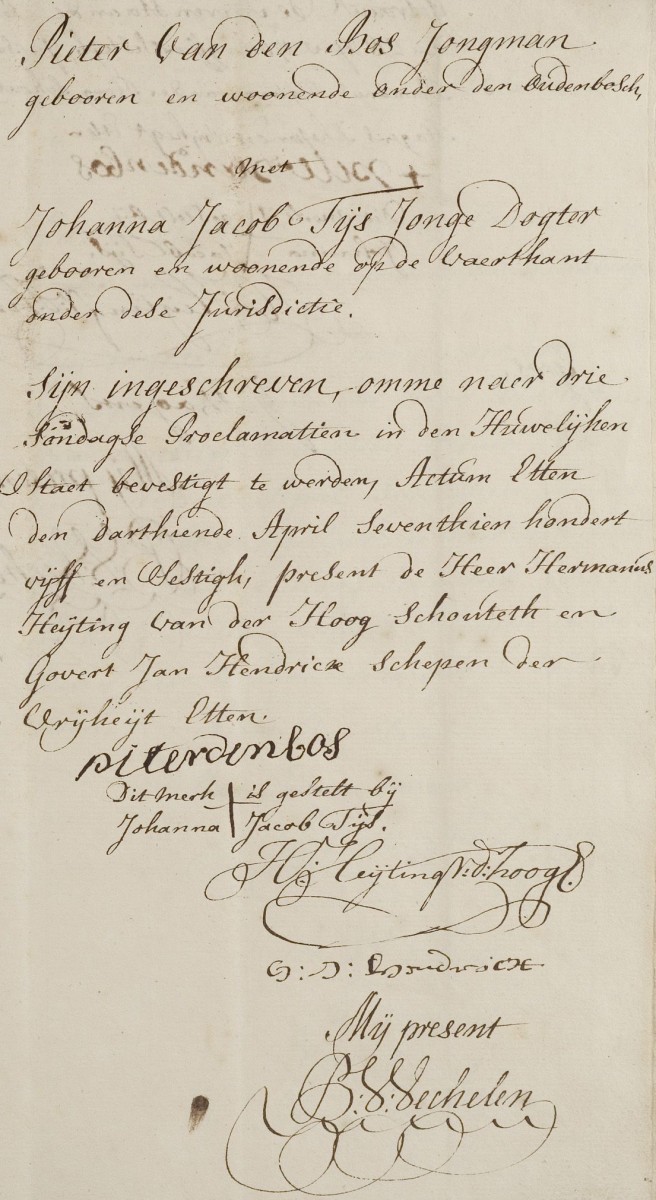 Pieter Van den Bos Jongman
gebooren en woonende onder den Oudenbosch,
met
Johanna Jacob Tijs Jonge Dogter
gebooren en woonende op de Vaerthant
onder dese Jurisdictie.
Sijn ingeschreven, omme naer drie
Sondagse Proclamatien in den Huwelijken
Staet bevestigt te werden, Actum Etten
den darthiende April seventhien hondert
vijff en Sestigh, present de Heer Hermanus
Heijting Van der Hoog Schouteth en
Govert Jan Hendricx schepen der
Vrijheijt Etten.
piterdenbos
Dit merk is gestelt bij
Johanna Jacob Tijs.
H: Heijting V: d: Hoog
G: J: Hendricx
Mij present
B: V: Mechelen